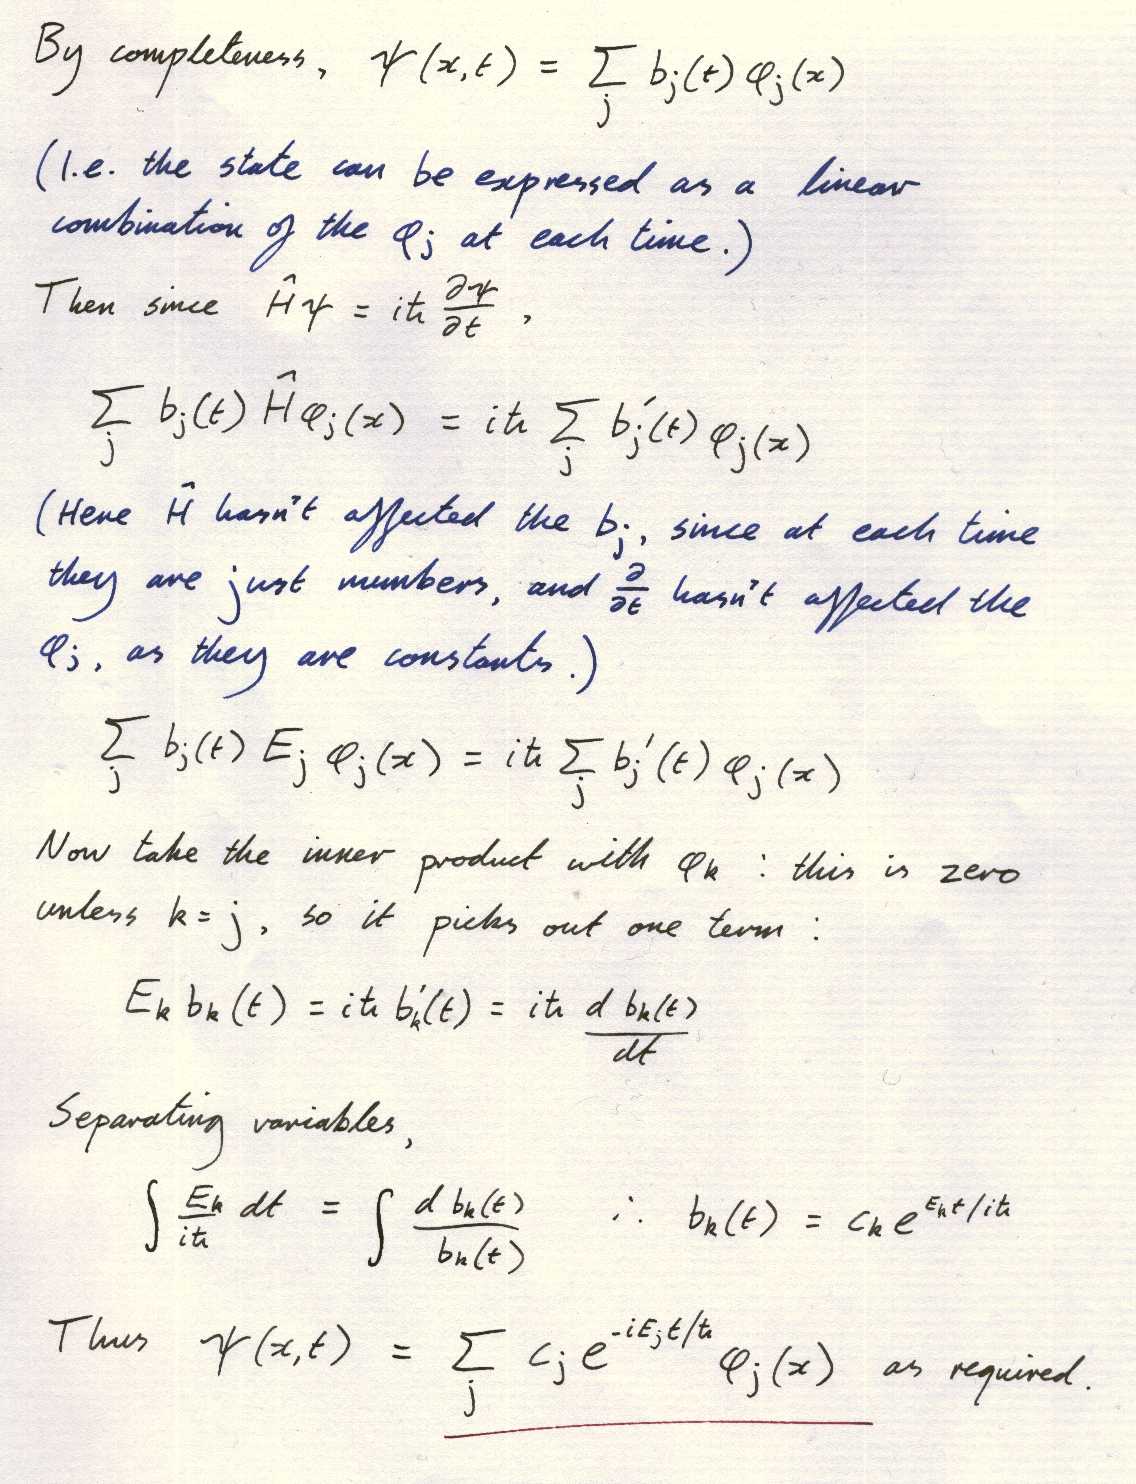 By completeness, ψ(x,t) = ∑_j b_j(t) φ_j(x)
(I.e. the state can be expressed as a linear
combination of the φ_j at each time.)
Then since Ĥψ = iħ ∂ψ/∂t ,
∑_j b_j(t) Ĥ φ_j(x) = iħ ∑_j b_j′(t) φ_j(x)
(Here Ĥ hasn't affected the b_j, since at each time
they are just numbers, and ∂/∂t hasn't affected the
φ_j, as they are constants.)
∑_j b_j(t) E_j φ_j(x) = iħ ∑_j b_j′(t) φ_j(x)
Now take the inner product with φ_k : this is zero
unless k = j, so it picks out one term :
E_k b_k(t) = iħ b_k′(t) = iħ d b_k(t)/dt
Separating variables,
∫ E_k/iħ dt = ∫ d b_k(t)/b_k(t) ∴ b_k(t) = c_k e^{E_k t/iħ}
Thus ψ(x,t) = ∑_j c_j e^{-iE_j t/ħ} φ_j(x) as required.